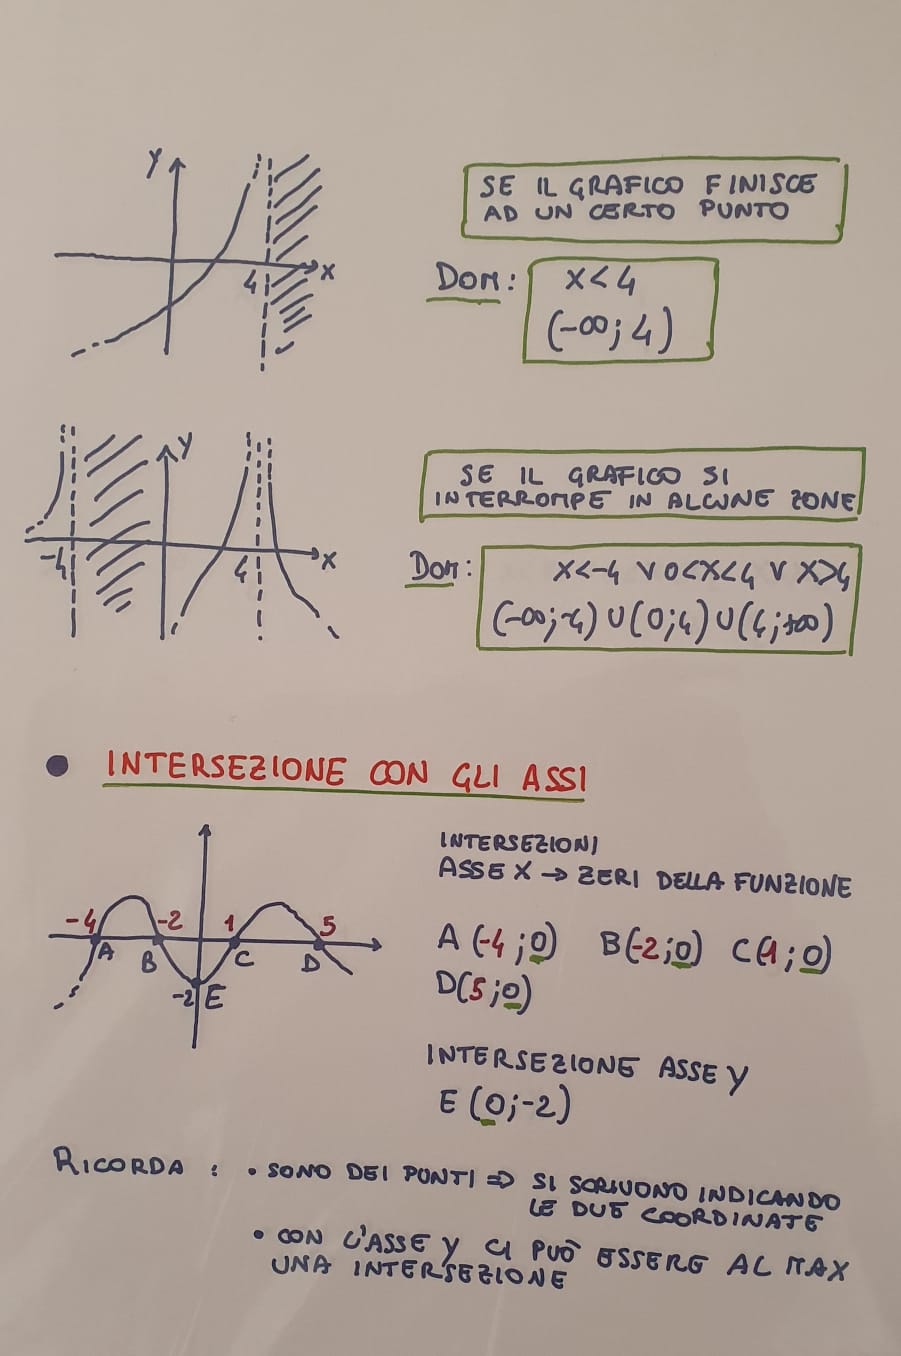 Y
X
4
SE IL GRAFICO FINISCE
AD UN CERTO PUNTO
DOM: X<4
(-∞; 4)
Y
X
-4
4
SE IL GRAFICO SI
INTERROMPE IN ALCUNE ZONE
DOM: X<-4 V 0<X<4 V X>4
(-∞;-4) U (0;4) U (4;+∞)
• INTERSEZIONE CON GLI ASSI
-4 -2 1 5
A B C D
-2 E
INTERSEZIONI
ASSE X → ZERI DELLA FUNZIONE
A (-4;0) B(-2;0) C(1;0)
D(5;0)
INTERSEZIONE ASSE Y
E (0;-2)
RICORDA : • SONO DEI PUNTI => SI SCRIVONO INDICANDO
LE DUE COORDINATE
• CON L'ASSE Y CI PUÒ ESSERE AL MAX
UNA INTERSEZIONE